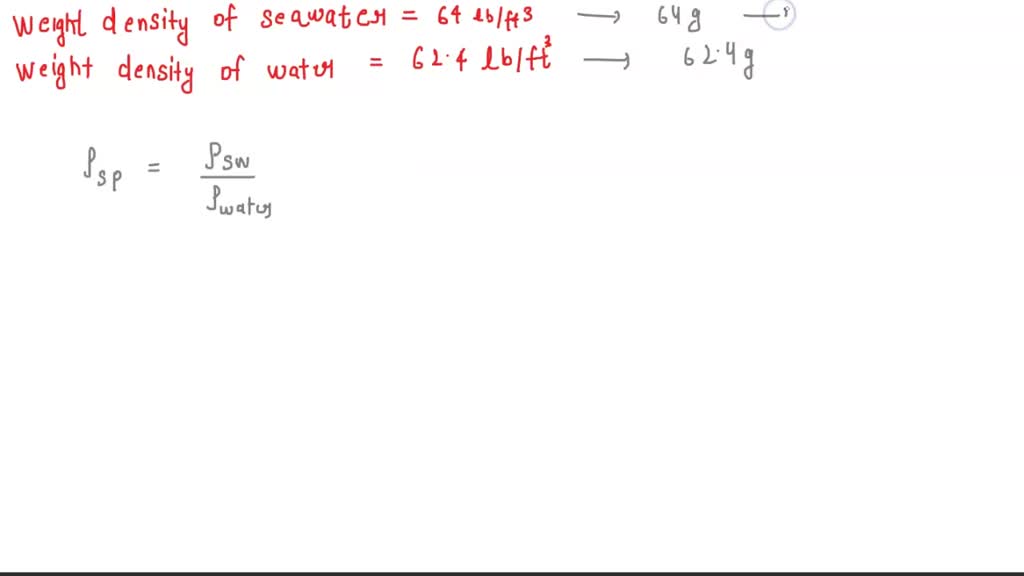 Weight density of seawater = 64 lb/ft3 → 64g —
Weight density of water = 62.4 lb/ft³ → 62.4g
ρsp = ρsw / ρwater